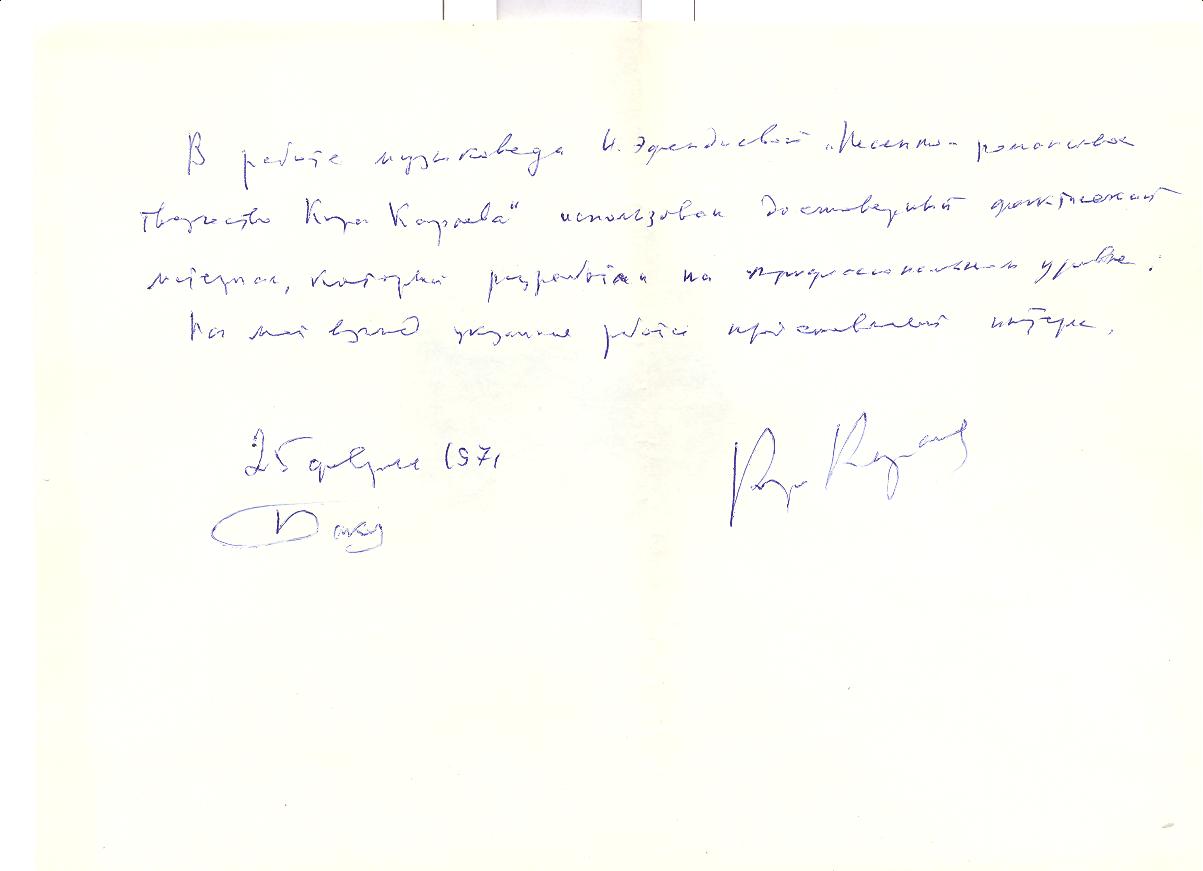 В работе музыковеда И. Эфендиевой „Песенно-романсовое
творчество Кара Караева“ использован достоверный фактический
материал, который разработан на профессиональном уровне.
На мой взгляд указанная работа представляет интерес.
25 февраля 1971
Баку
Кара Караев